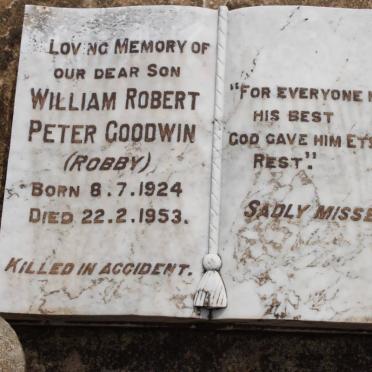 Loving Memory of
our dear Son
William Robert
Peter Goodwin
(Robby)
Born 8.7.1924
Died 22.2.1953.
Killed in Accident.
"For everyone
his best
God gave him
Rest".
Sadly